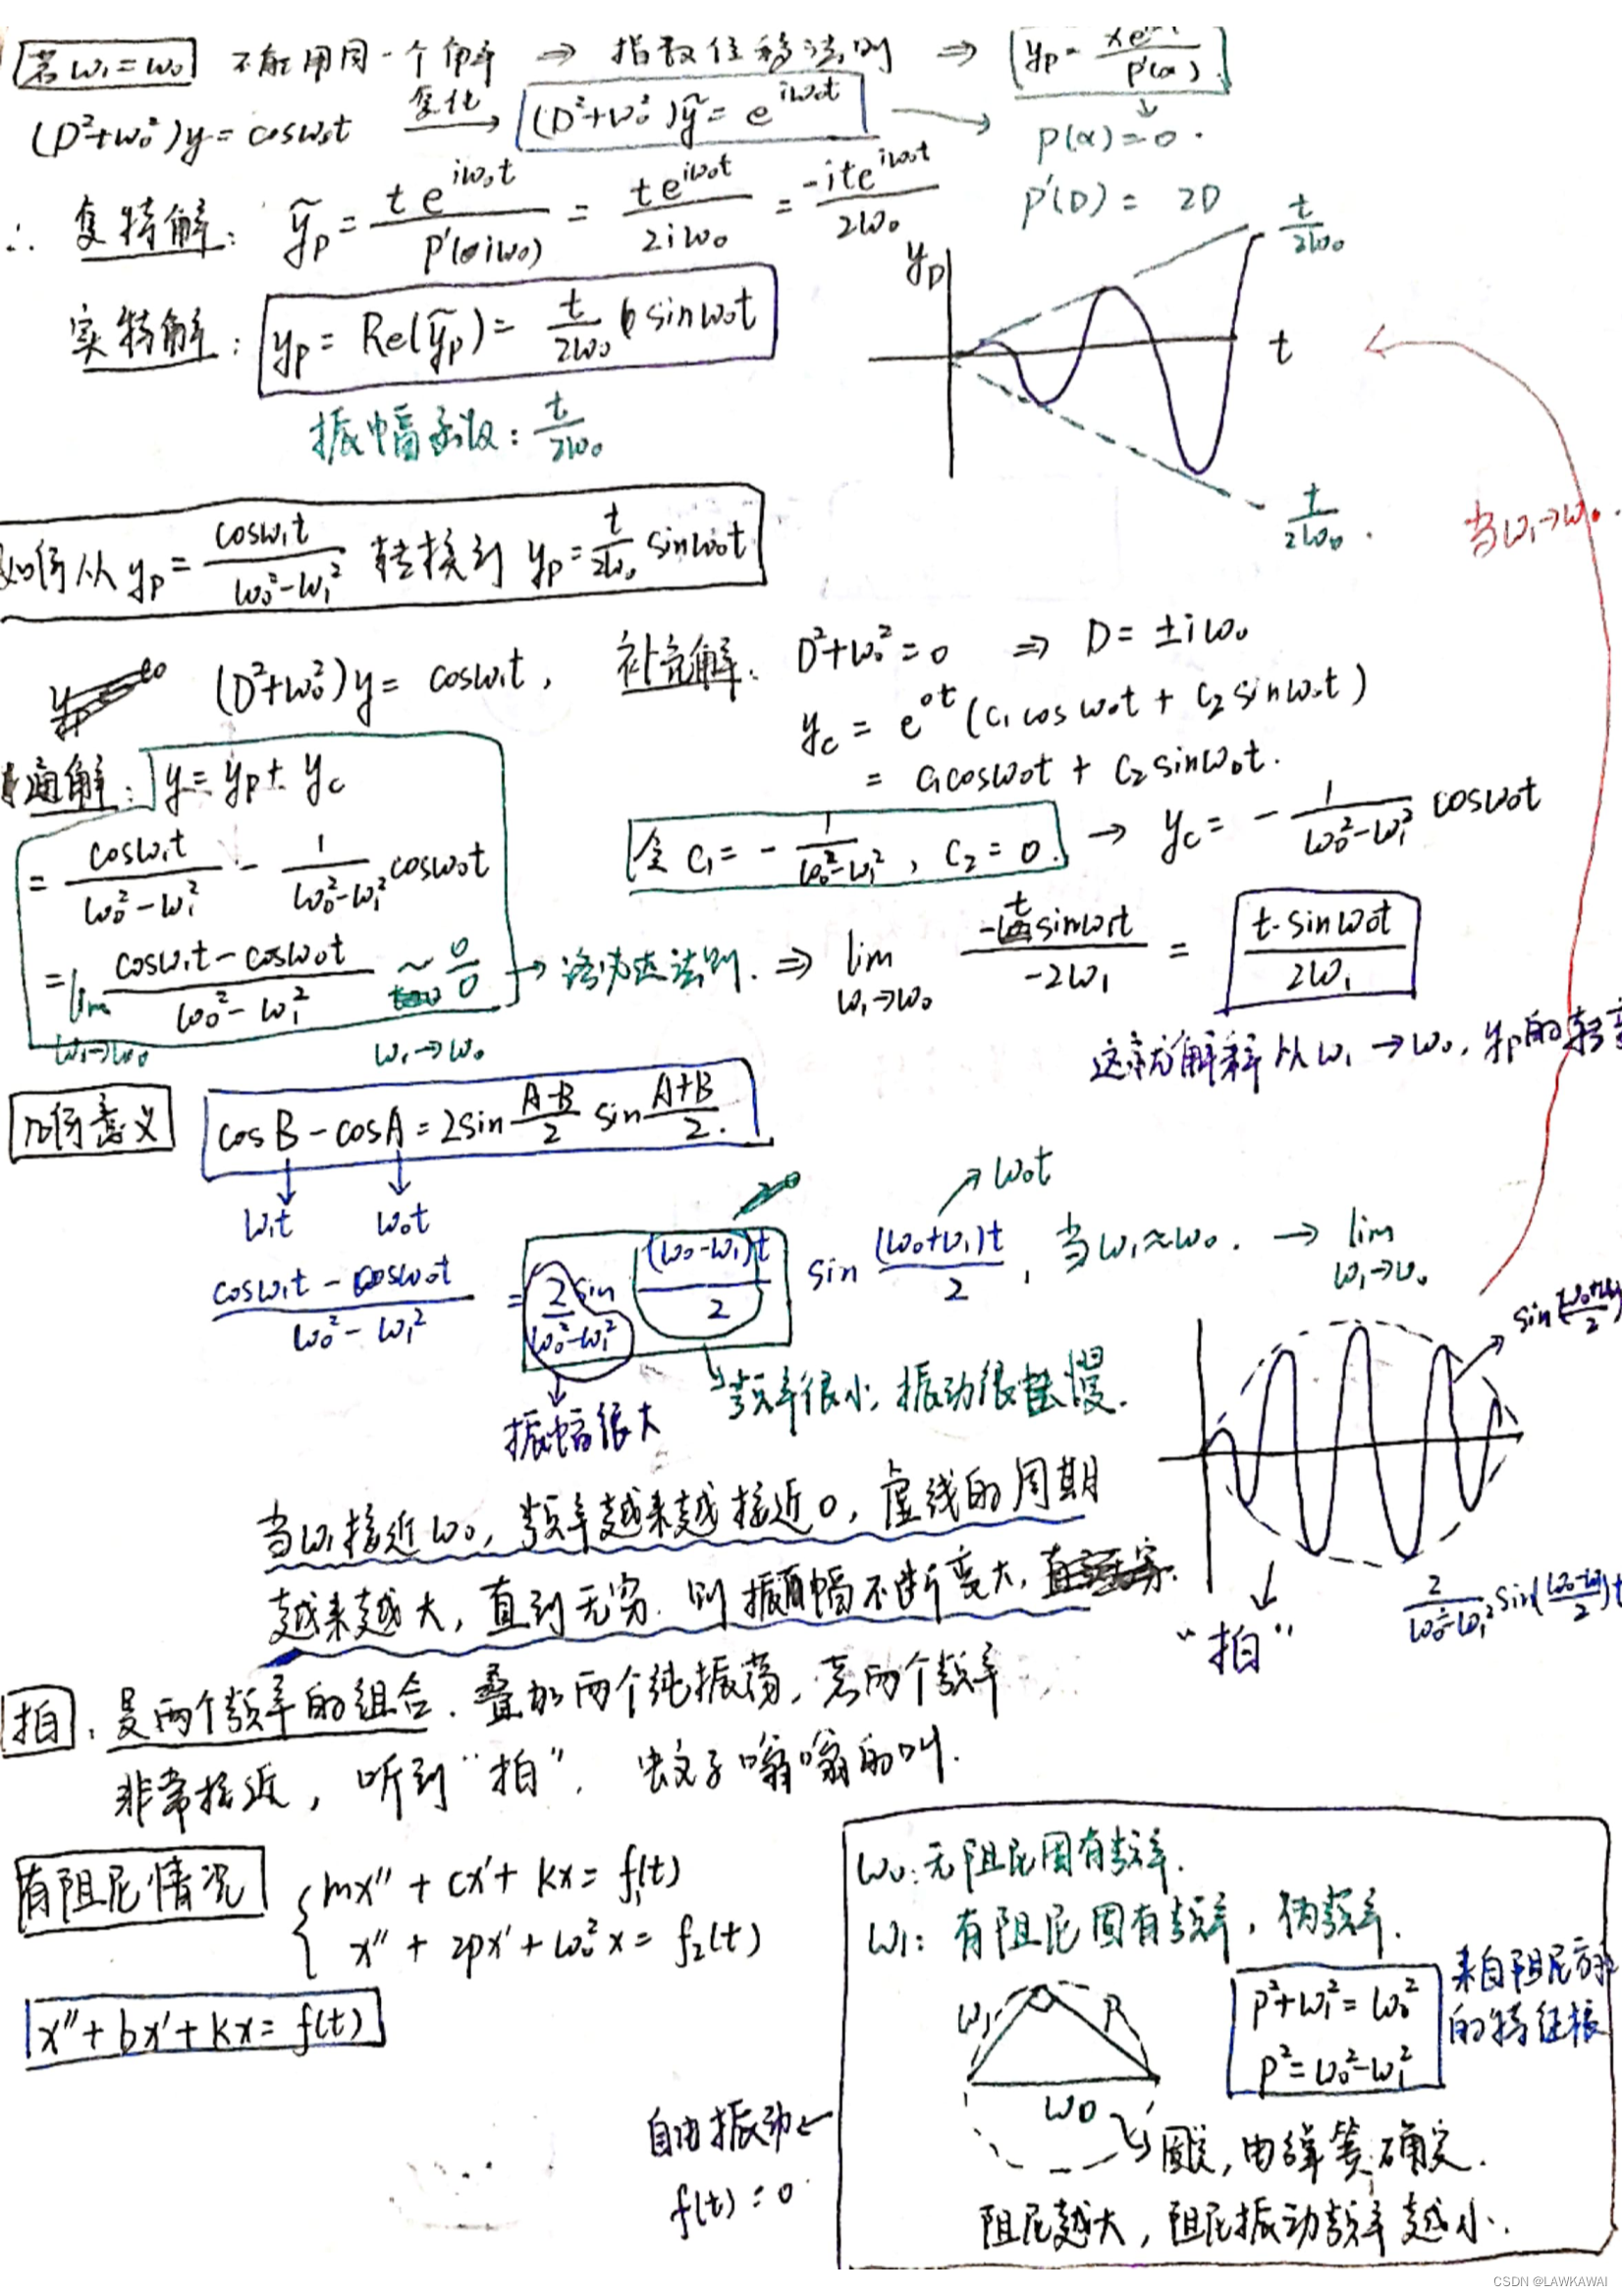 若ω₁=ω₀ 不能用同一个解 ⇒ 指数位移法则 ⇒ yp = xe / p'(α)
(D²+ω₀²)y = cosω₀t 复化→ (D²+ω₀²)ỹ = e^{iω₀t} → p(α)=0.
p'(D) = 2D
∴ 复特解: ỹp = te^{iω₀t} / p'(iω₀) = te^{iω₀t} / 2iω₀ = -ite^{iω₀t} / 2ω₀
实特解: yp = Re(ỹp) = t/2ω₀ sinω₀t
振幅函数: t/2ω₀
yp
t/2ω₀
t
t/2ω₀.
当ω₁→ω₀.
如何从 yp = cosω₁t / ω₀²-ω₁² 转换到 yp = t/2ω₀ sinω₀t
(D²+ω₀²)y = cosω₁t, 补充解: D²+ω₀²=0 ⇒ D = ±iω₀
yc = e^{0t}(c₁cosω₀t + c₂sinω₀t)
= c₁cosω₀t + c₂sinω₀t.
通解: y = yp + yc
令 c₁ = - 1/ω₀²-ω₁², c₂ = 0. → yc = - 1/ω₀²-ω₁² cosω₀t
= cosω₁t / ω₀²-ω₁² - 1/ω₀²-ω₁² cosω₀t
= lim ω₁→ω₀ cosω₁t - cosω₀t / ω₀²-ω₁² ~ 0/0 ω₁→ω₀ → 洛必达法则. ⇒ lim ω₁→ω₀ -t sinω₁t / -2ω₁ = t·sinω₀t / 2ω₁
这就解释从ω₁→ω₀, yp的转变
几何意义 cosB - cosA = 2sin A-B/2 sin A+B/2.
ω₁t ω₀t
cosω₁t - cosω₀t / ω₀²-ω₁² = 2/ω₀²-ω₁² sin (ω₀-ω₁)t/2 sin (ω₀+ω₁)t/2, 当ω₁≈ω₀. → lim ω₁→ω₀
→0
↗ω₀t
振幅很大
频率很小, 振动很慢.
sin(ω₀+ω₁/2)
2/ω₀²-ω₁² sin(ω₀-ω₁/2)t
"拍"
当ω₁接近ω₀, 频率越来越接近0, 虚线的周期
越来越大, 直到无穷. 则振幅不断变大,
拍: 是两个频率的组合. 叠加两个纯振荡, 若两个频率
非常接近, 听到"拍". 蚊子嗡嗡的叫.
有阻尼情况 { mx'' + cx' + kx = f₁(t)
x'' + 2px' + ω₀²x = f₂(t)
x'' + bx' + kx = f(t)
ω₀: 无阻尼固有频率.
ω₁: 有阻尼固有频率, 伪频率.
ω₁ p
ω₀
p²+ω₁² = ω₀²
p² = ω₀²-ω₁²
来自阻尼方程
的特征根
自由振动
f(t) = 0
固定, 由弹簧确定.
阻尼越大, 阻尼振动频率越小.
CSDN @LAWKAWAI